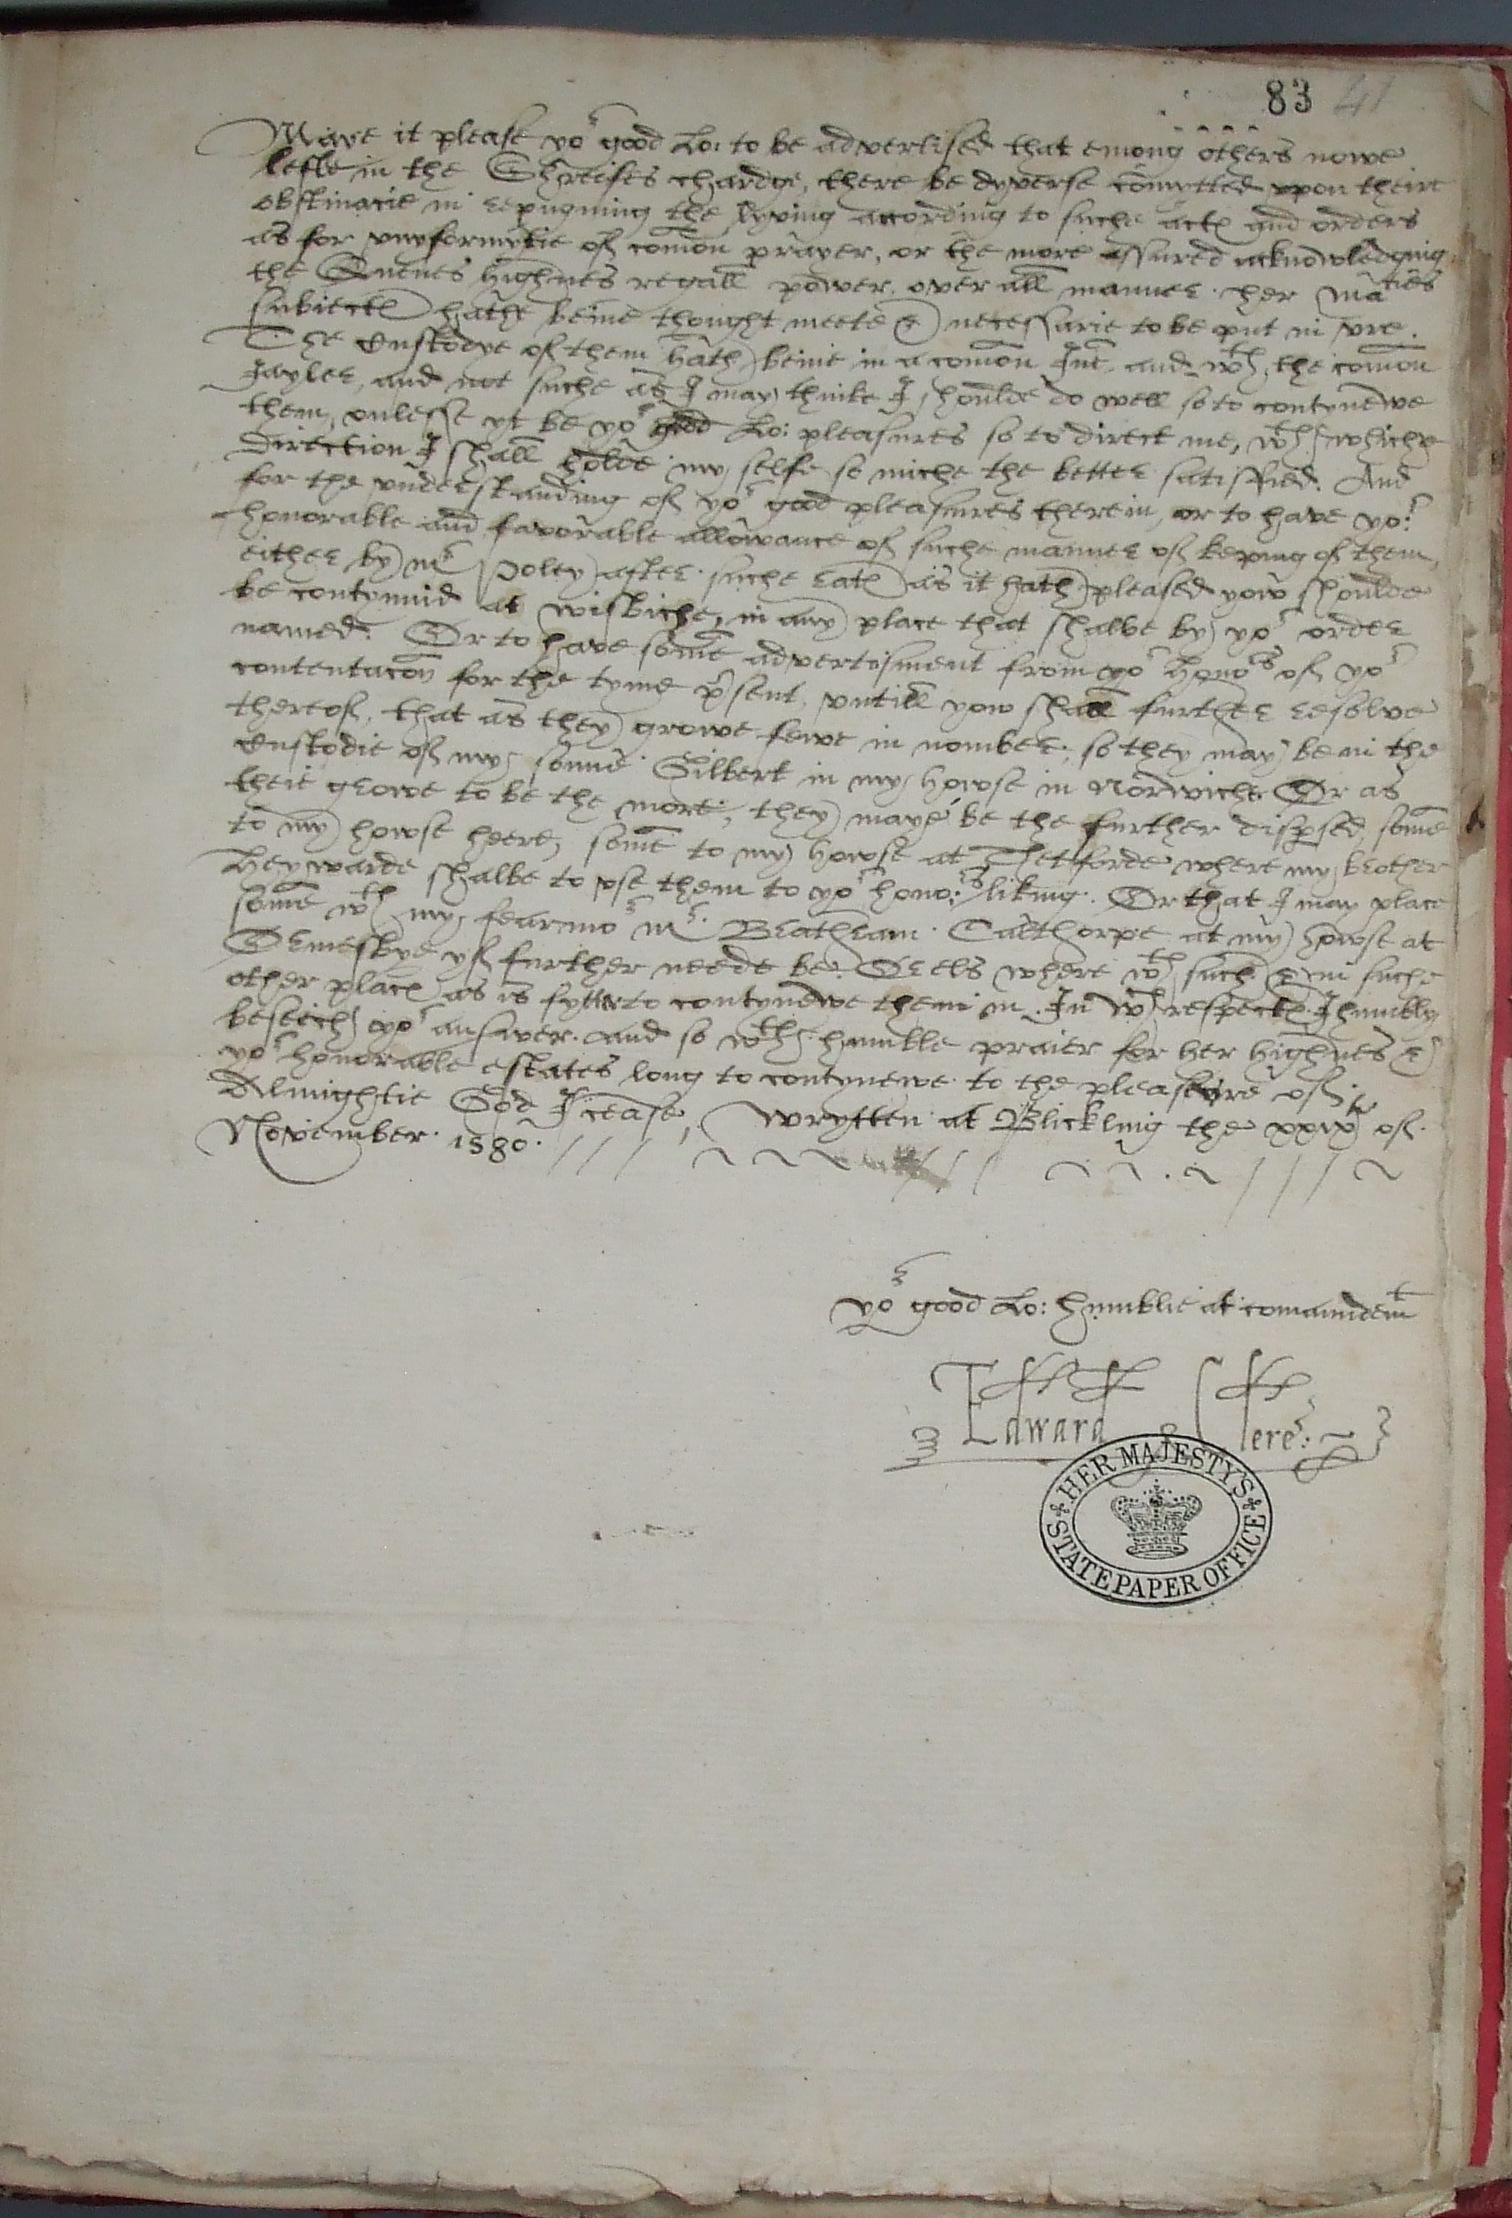 83 41
Maye it please yor good Lo: to be advertised that emong others nowe
lefte in the Shreifes chardge, there be dyverse comytted vpon theire
obstinacie in repugning the lyving according to suche actes and orders
as for vnyformytie of comon prayer, or the more assured acknowledging
the Quenes highnes regall power over all manner her Maties
subiectes hathe beine thought meete & necessarie to be put in vre.
The Custodye of them hath beine in a comon Inne and wth the comon
Jayler, and not suche as I may thinke I shoulde do well so to contynewe
them, vnlesse yt be yor good Lo: pleasures so to direct me, wth whiche
direction I shall holde my selfe so miche the better satisfied. And
for the vnderstanding of yor good pleasures therein, or to have yor
honorable and favorable allowance of suche manner of keping of them,
either by mr Poley after suche rates as it hath pleased yow shoulde
be contynuid at Wisbiche, in any place that shalbe by yor order
named. Or to have some advertisment from yor honors of yor
contentacon for the tyme psent, vntill yow shall further resolve
thereof, that as they growe fewe in nomber, so they may be in the
Custodie of my sonne Gilbert in my howse in Norwiche Or as
their growe to be the more, they maye be the further dispsed, some
to my howse heere, some to my howse at Thetforde where my brother
Heywarde shalbe to vse them to yor honors liking. Or that I may place
some wth my fearmor mr Beatheam Calthorpe at my howse at
Ormesbye yf further neede be. Or els where wth such & in suche
other places as is fytt to contynewe them in. In wch respectes I humbly
beseech yor answer. And so wth humble praier for her highnes &
yor honorable estates long to contynewe to the pleasure of
Almightie God I cease, Wrytten at Blickling the xxixth of
November 1580.
yor good Lo: humblie at comaundemt
Edward Clere
HER MAJESTY'S
STATE PAPER OFFICE